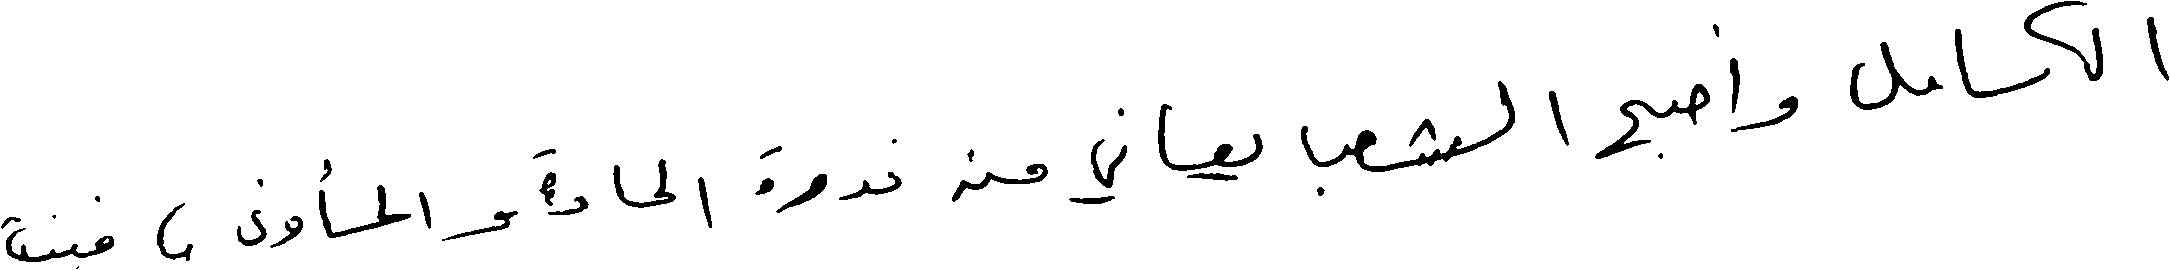 الكامل وأصبح الشعب يعاني من ندرة المادة و المأوى ، فبنية